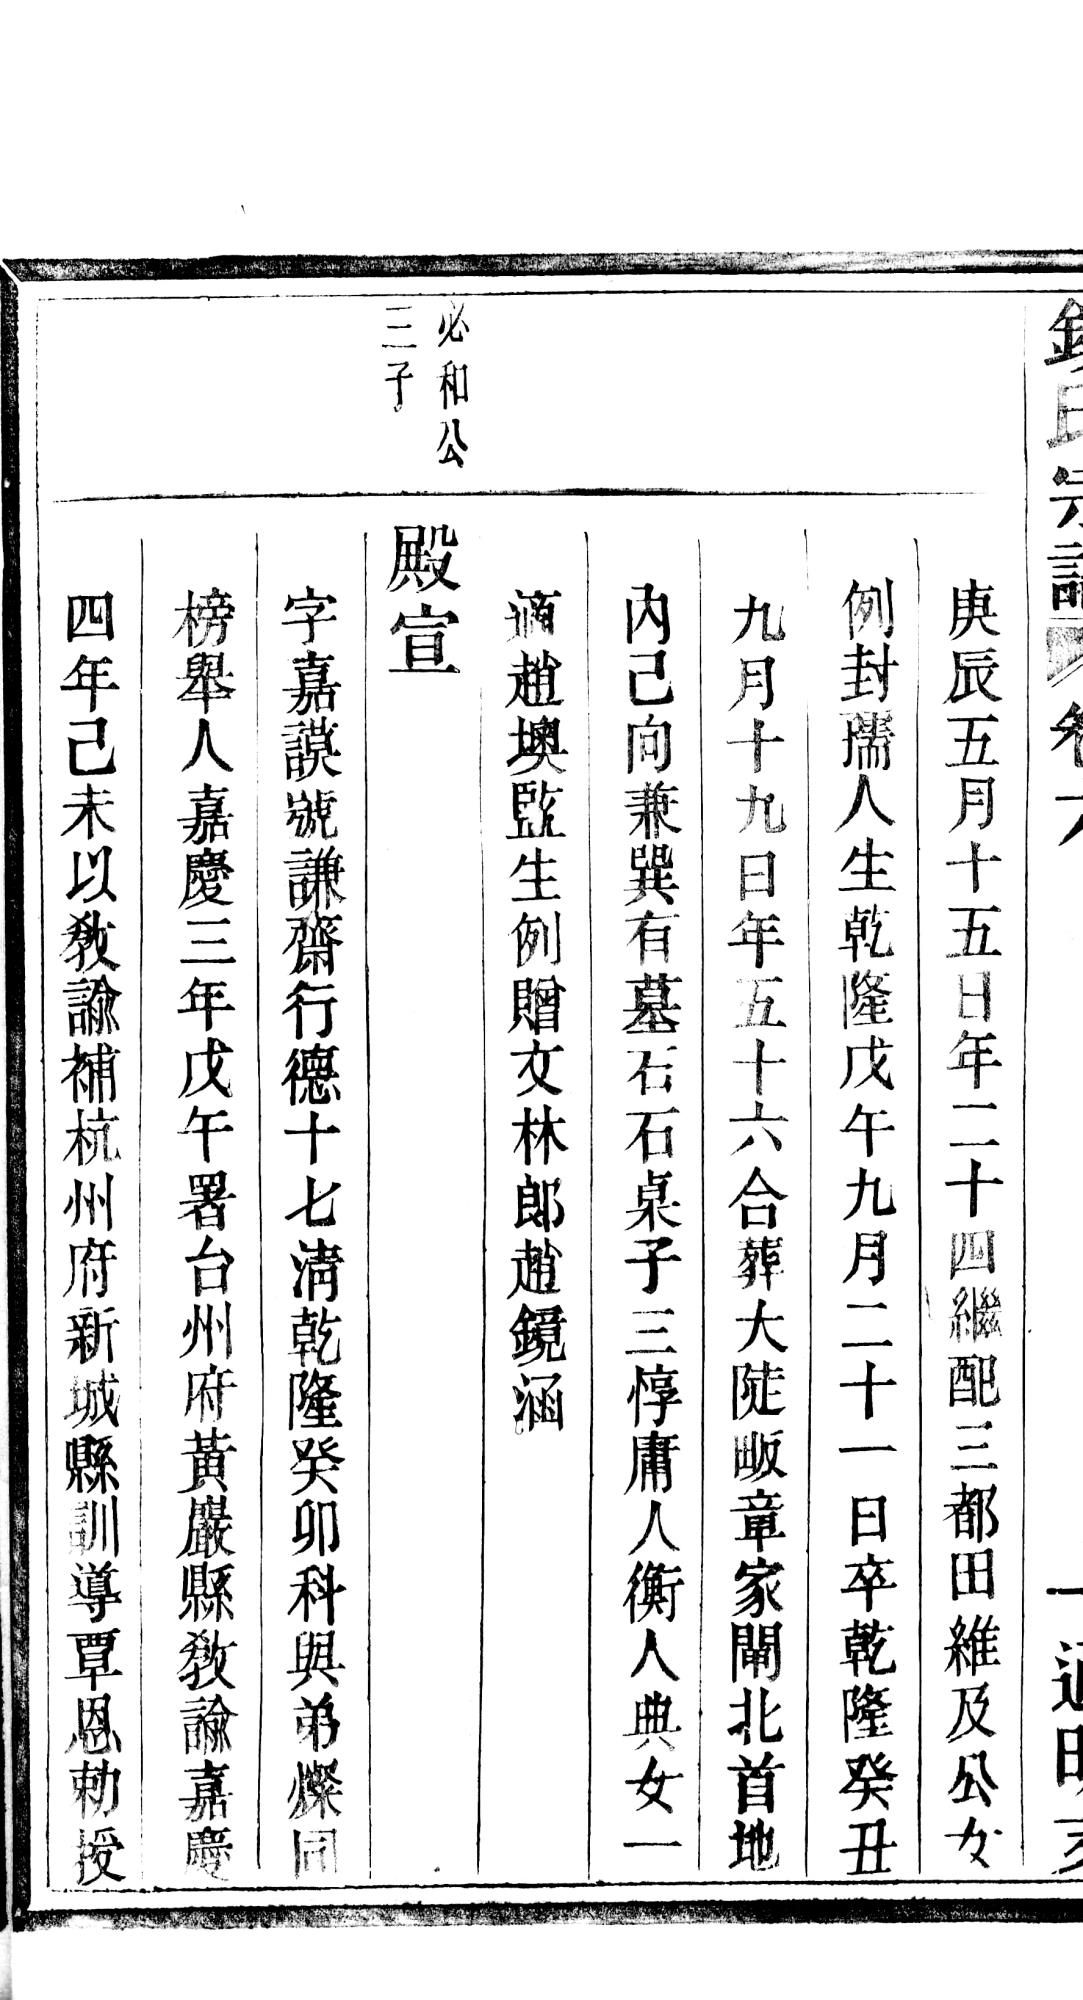 錢氏宗譜 卷六 一 通明支
庚辰五月十五日年二十四繼配三都田維及公女
例封孺人生乾隆戊午九月二十一日卒乾隆癸丑
九月十九日年五十六合葬大陡畈章家閘北首地
內己向兼巽有墓石石桌子三惇庸人衡人典女一
適趙墺監生例贈文林郎趙鏡涵
必和公
三子
殿宣
字嘉謨號謙齋行德十七淸乾隆癸卯科與弟燦同
榜舉人嘉慶三年戊午署台州府黃巖縣敎諭嘉慶
四年己未以敎諭補杭州府新城縣訓導覃恩勅授